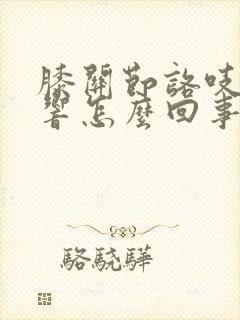 膝關節咯吱
響怎麼回事
駱驍驊